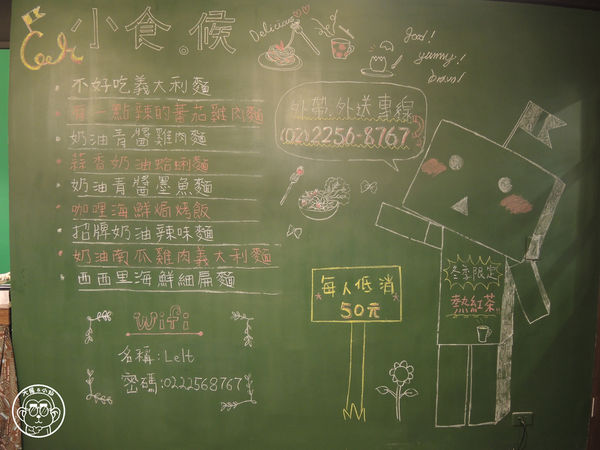 小食。候
Delicious
good!
yummy!
不好吃義大利麵
有一點辣的蕃茄雞肉麵
奶油青醬雞肉麵
蒜香奶油蛤蜊麵
奶油青醬墨魚麵
咖哩海鮮焗烤飯
招牌奶油辣味麵
奶油南瓜雞肉義大利麵
西西里海鮮細扁麵
外帶.外送專線
(02)2256-8767
每人低消
50元
冬季限定
熱紅茶
wifi
名稱:Lelt
密碼:0222568767